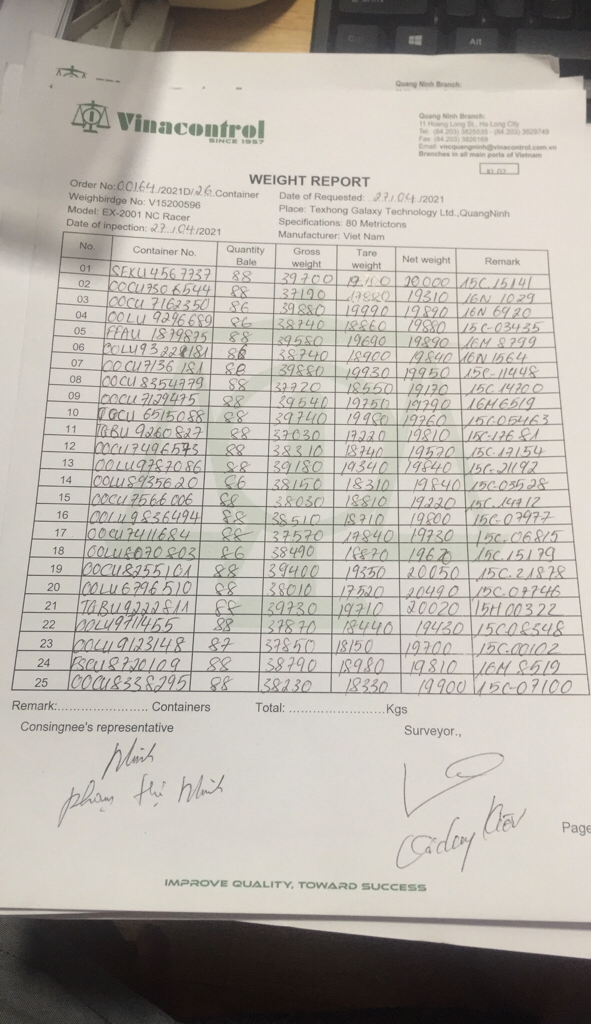 Quang Ninh Branch:
Vinacontrol
SINCE 1957
Quang Ninh Branch:
11 Hoang Long St., Ha Long City
Email: vncquangninh@vinacontrol.com.vn
Branches in all main ports of Vietnam
WEIGHT REPORT
Order No: 00164/2021D/26 Container
Date of Requested: 27/04/2021
Weighbirdge No: V15200596
Place: Texhong Galaxy Technology Ltd.,QuangNinh
Model: EX-2001 NC Racer
Specifications: 80 Metrictons
Date of inpection: 27/04/2021
Manufacturer: Viet Nam
No. Container No. Quantity Bale Gross weight Tare weight Net weight Remark
01 88 39700 15C.15141
02 OOCU7306544 88 37190 17880 19310 16N 1029
03 OOCU 7162350 86 39880 19990 19890 16N 6920
04 OOLU 9296689 86 38740 18860 19880 15C-03435
05 FFAU 1879875 88 39580 19690 19890 16M 8799
06 88 38740 18900 19840 16N 1564
07 OOCU7136 181 39880 19930 19950 15C-11448
08 OOCU 8354779 88 37720 18550 19170 15C 14700
09 OOCU 7129475 88 39540 19750 19790 16M6519
10 TGCU 6515088 88 39740 19980 19760 15C05463
11 TGBU 9260827 88 37030 17220 19810
12 OOCU7496573 88 38310 18740 19570 15C-17154
13 OOLU9787086 88 39180 19340 19840 15C-21192
14 OOLU8935620 86 38150 18310 19840 15C-03528
15 OOCU7566006 88 38030 18810 19220
16 OOLU9836494 88 38510 18710 19800 15C-07977
17 OOCU7411684 88 37570 17840 19730 15C.06815
18 OOLU8070803 86 38490 18870 15C.15179
19 OOCU8255101 88 39400 19350 20050 15C.21878
20 OOLU6796510 88 38010 17520 20490 15C.07746
21 TGBU9222811 88 39730 19710 20020 15H00322
22 OOLU9711455 88 37870 18440 19430 15C08348
23 OOLU9123148 87 37850 18150 19700 15C.00102
24 FSCU8720109 88 38790 18980 19810 16M 8519
25 OOCU8338295 88 38230 18330 19900 15C-07100
Remark:.................... Containers Total: .......................Kgs
Consingnee's representative Surveyor.,
Minh
Phạm Thị Minh
Page
IMPROVE QUALITY, TOWARD SUCCESS